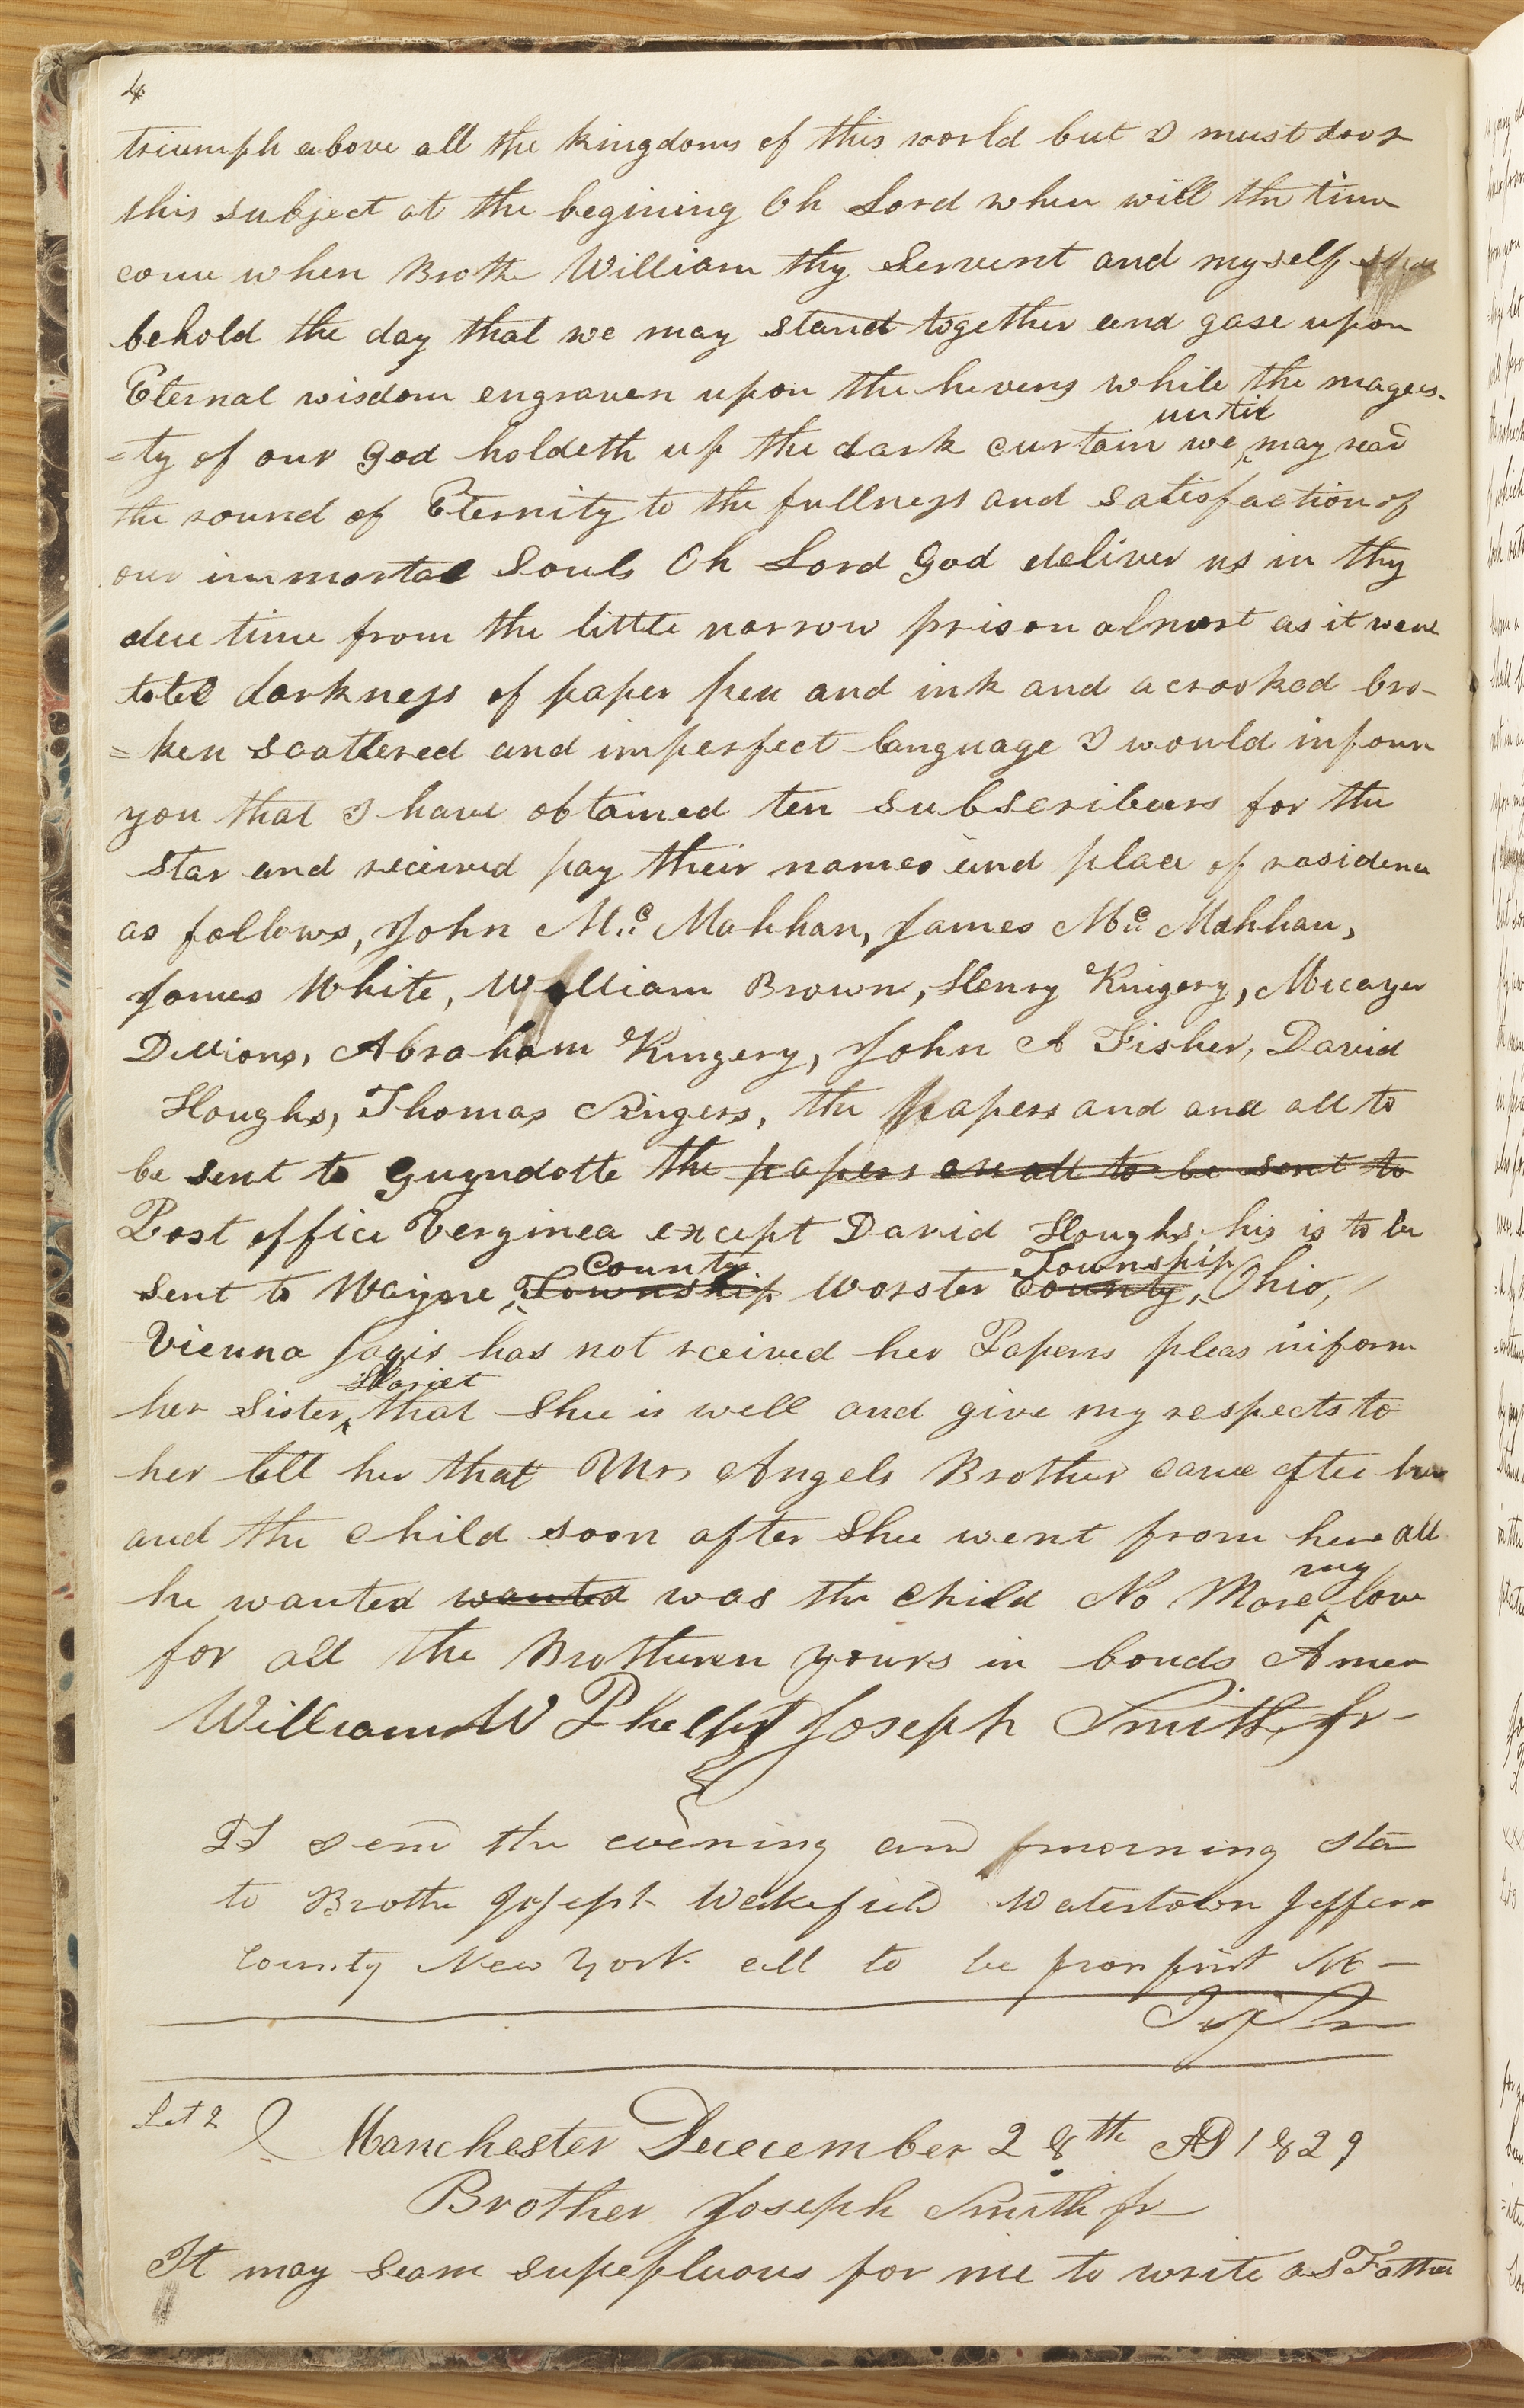 4
triumph above all the kingdoms of this world but I must drop
this subject at the begining Oh Lord when will the time
come when Brothe William thy Servent and myself
behold the day that we may stand together and gase upon
Eternal wisdom engraven upon the hevens while the magees-
=ty of our God holdeth up the dark curtain we until may read
the round of Eternity to the fullness and satisfaction of
our immortal Souls Oh Lord God deliver us in thy
due time from the little narrow prison almost as it were
totel darkness of paper pen and ink and a crooked bro-
=ken scattered and imperfect language I would inform
you that I have obtained ten subscribers for the
Star and received pay their names and place of residence
as follows, John Mc. Mahhan, James Mc. Mahhan,
James White, William Brown, Henry Kingery, Micayer
Dillions, Abraham Kingery, John A Fisher, David
Houghs, Thomas Singers, the papers and and all to
be sent to Guyndotte the papers are all to be sent to
Post office Verginea except David Houghs his is to be
sent to Wayne County Township Worster Township County, Ohio,
Vienna Jaqis has not received her Papers pleas inform
her Sister Hariet that Shee is well and give my respects to
her tell her that Mrs Angels Brother came after her
and the child soon after Shee went from here all
he wanted wanted was the child No More my love
for all the Brotheren yours in bonds Amen
William W Phelps Joseph Smith Jr-
PS send the evening and morning star
to Brothe Joseph Wakefield Watertown Jefferson
County New York all to be from first No-
JS Jr
Let 2 Manchester Dececember 28th AD 1829
Brother Joseph Smith jr
It may seam supepluous for me to write as Father